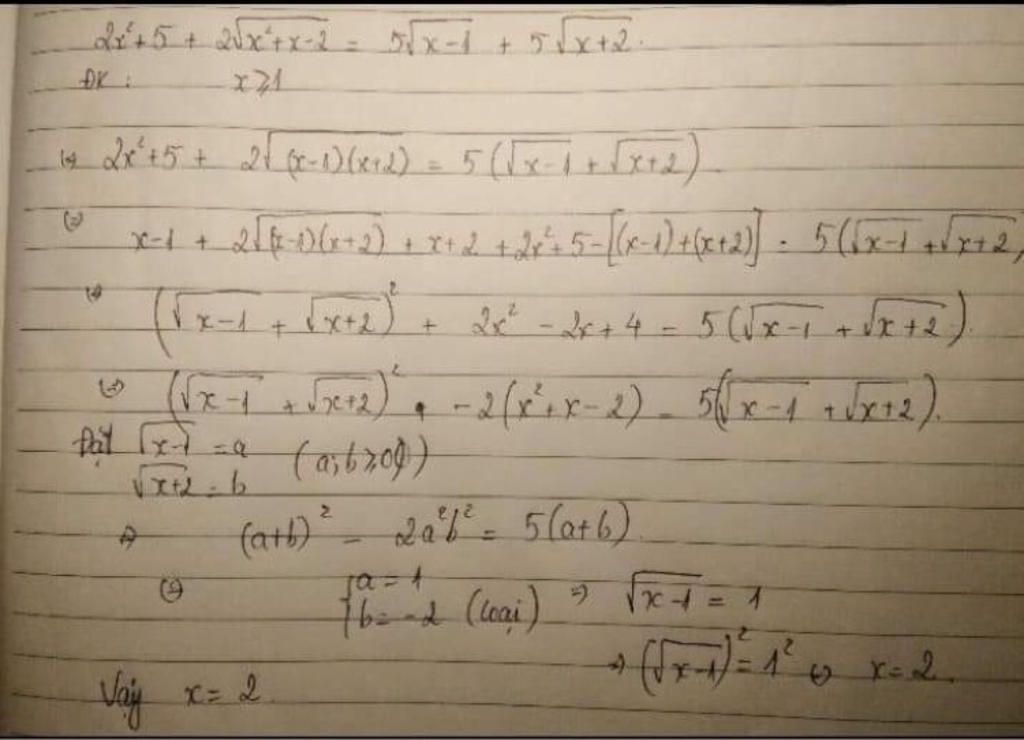 2x²+5 + 2√(x²+x-2) = 5√(x-1) + 5√(x+2).
ĐK : x ≥ 1
(=) 2x²+5 + 2√((x-1)(x+2)) = 5(√(x-1) + √(x+2))
(=) x-1 + 2√((x-1)(x+2)) + x+2 + 2x²+5-[(x-1)+(x+2)] = 5(√(x-1) + √(x+2))
(=) (√(x-1) + √(x+2))² + 2x² - 2x + 4 = 5(√(x-1) + √(x+2)).
(=) (√(x-1) + √(x+2))² - 2(x²+x-2) = 5(√(x-1) + √(x+2)).
Đặt √(x-1) = a
√(x+2) = b (a;b ≥ 0)
⇒ (a+b)² - 2a²b² = 5(a+b)
(=) { a = 1
b = -2 (loại) ⇒ √(x-1) = 1
⇒ (√(x-1))² = 1² (=) x = 2.
Vậy x = 2